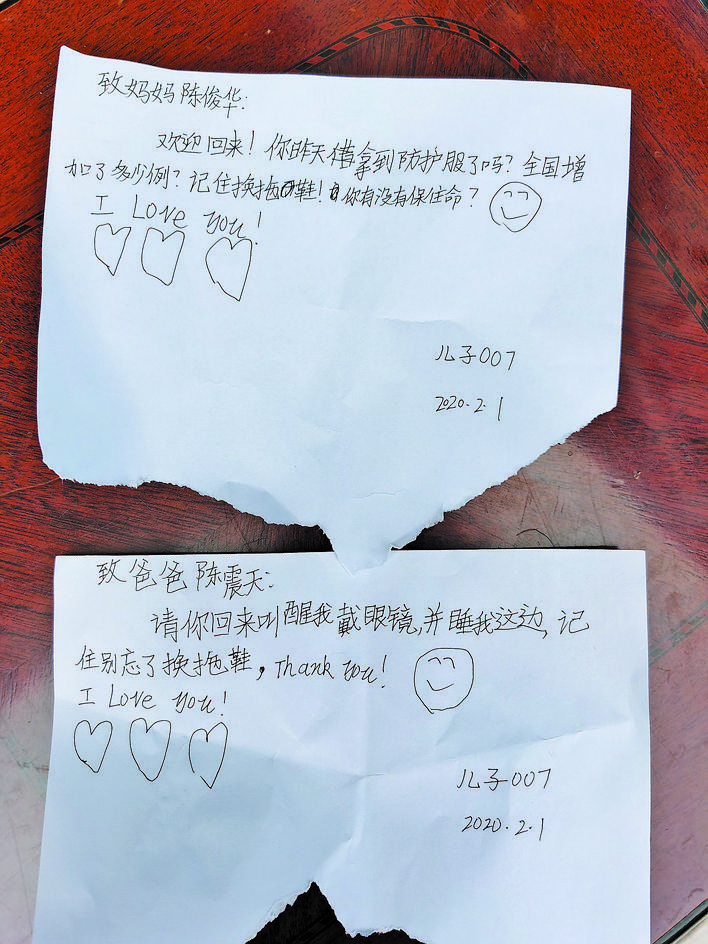 致妈妈陈俊华:
欢迎回来！你昨天借拿到防护服了吗？全国增
加了多少例？记住换拖鞋！你有没有保住命？
I Love you!
儿子007
2020.2.1
致爸爸陈震天:
请你回来叫醒我戴眼镜,并睡我这边,记
住别忘了换拖鞋，Thank you!
I Love you!
儿子007
2020.2.1